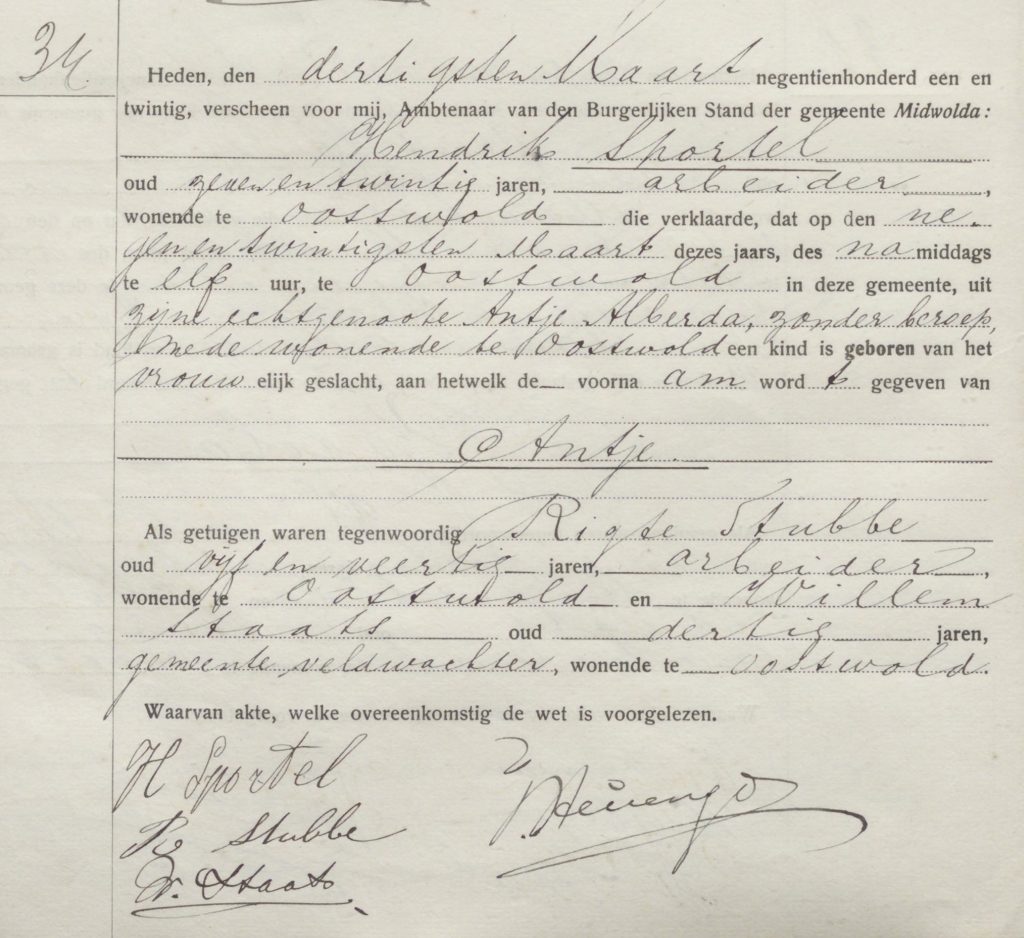 34.
Heden, den dertigsten Maart negentienhonderd een en
twintig, verscheen voor mij, Ambtenaar van den Burgerlijken Stand der gemeente Midwolda:
Hendrik Sportel
oud zeven en twintig jaren, arbeider,
wonende te Oostwold die verklaarde, dat op den ne-
gen en twintigsten Maart dezes jaars, des namiddags
te elf uur, te Oostwold in deze gemeente, uit
zijne echtgenoote Antje Alberda, zonder beroep,
mede wonende te Oostwold een kind is geboren van het
vrouwelijk geslacht, aan hetwelk de voornaam wordt gegeven van
Antje.
Als getuigen waren tegenwoordig Rigte Stubbe
oud vijf en veertig jaren, arbeider,
wonende te Oostwold en Willem
Staats oud dertig jaren,
gemeente veldwachter, wonende te Oostwold.
Waarvan akte, welke overeenkomstig de wet is voorgelezen.
H Sportel
R Stubbe
W. Staats